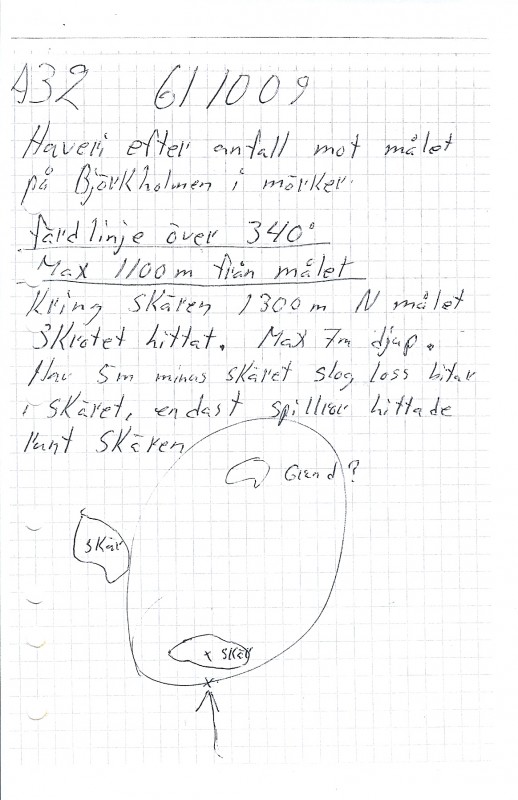 A32 611009
Haveri efter anfall mot målet
på Björkholmen i mörker.
färdlinje över 340°
Max 1100m från målet
Kring skären 1300m N målet
Skrotet hittat. Max 7m djup.
5m minus skäret slog loss bitar
i skäret, endast spillror hittade
runt skären
Grund?
Skär
x Skär
x